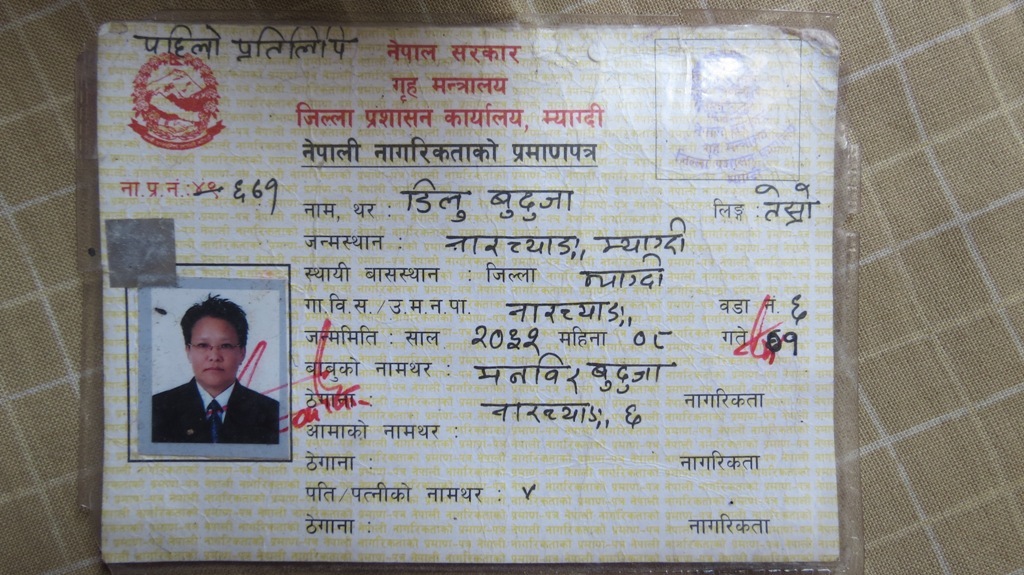 पहिलो प्रतिलिपि
नेपाल सरकार
गृह मन्त्रालय
जिल्ला प्रशासन कार्यालय, म्याग्दी
नेपाली नागरिकताको प्रमाणपत्र
ना.प्र.नं.
नाम, थर : डिलु बुदुजा लिङ्ग : तेस्रो
जन्मस्थान : नारच्याङ, म्याग्दी
स्थायी बासस्थान : जिल्ला म्याग्दी
गा.वि.स./उ.म.न.पा. नारच्याङ, वडा नं. ६
जन्ममिति : साल महिना ०८ गते
बाबुको नामथर : मनविर बुदुजा
ठेगाना : नारच्याङ, ६ नागरिकता
आमाको नामथर :
ठेगाना : नागरिकता
पति/पत्नीको नामथर :
ठेगाना : नागरिकता